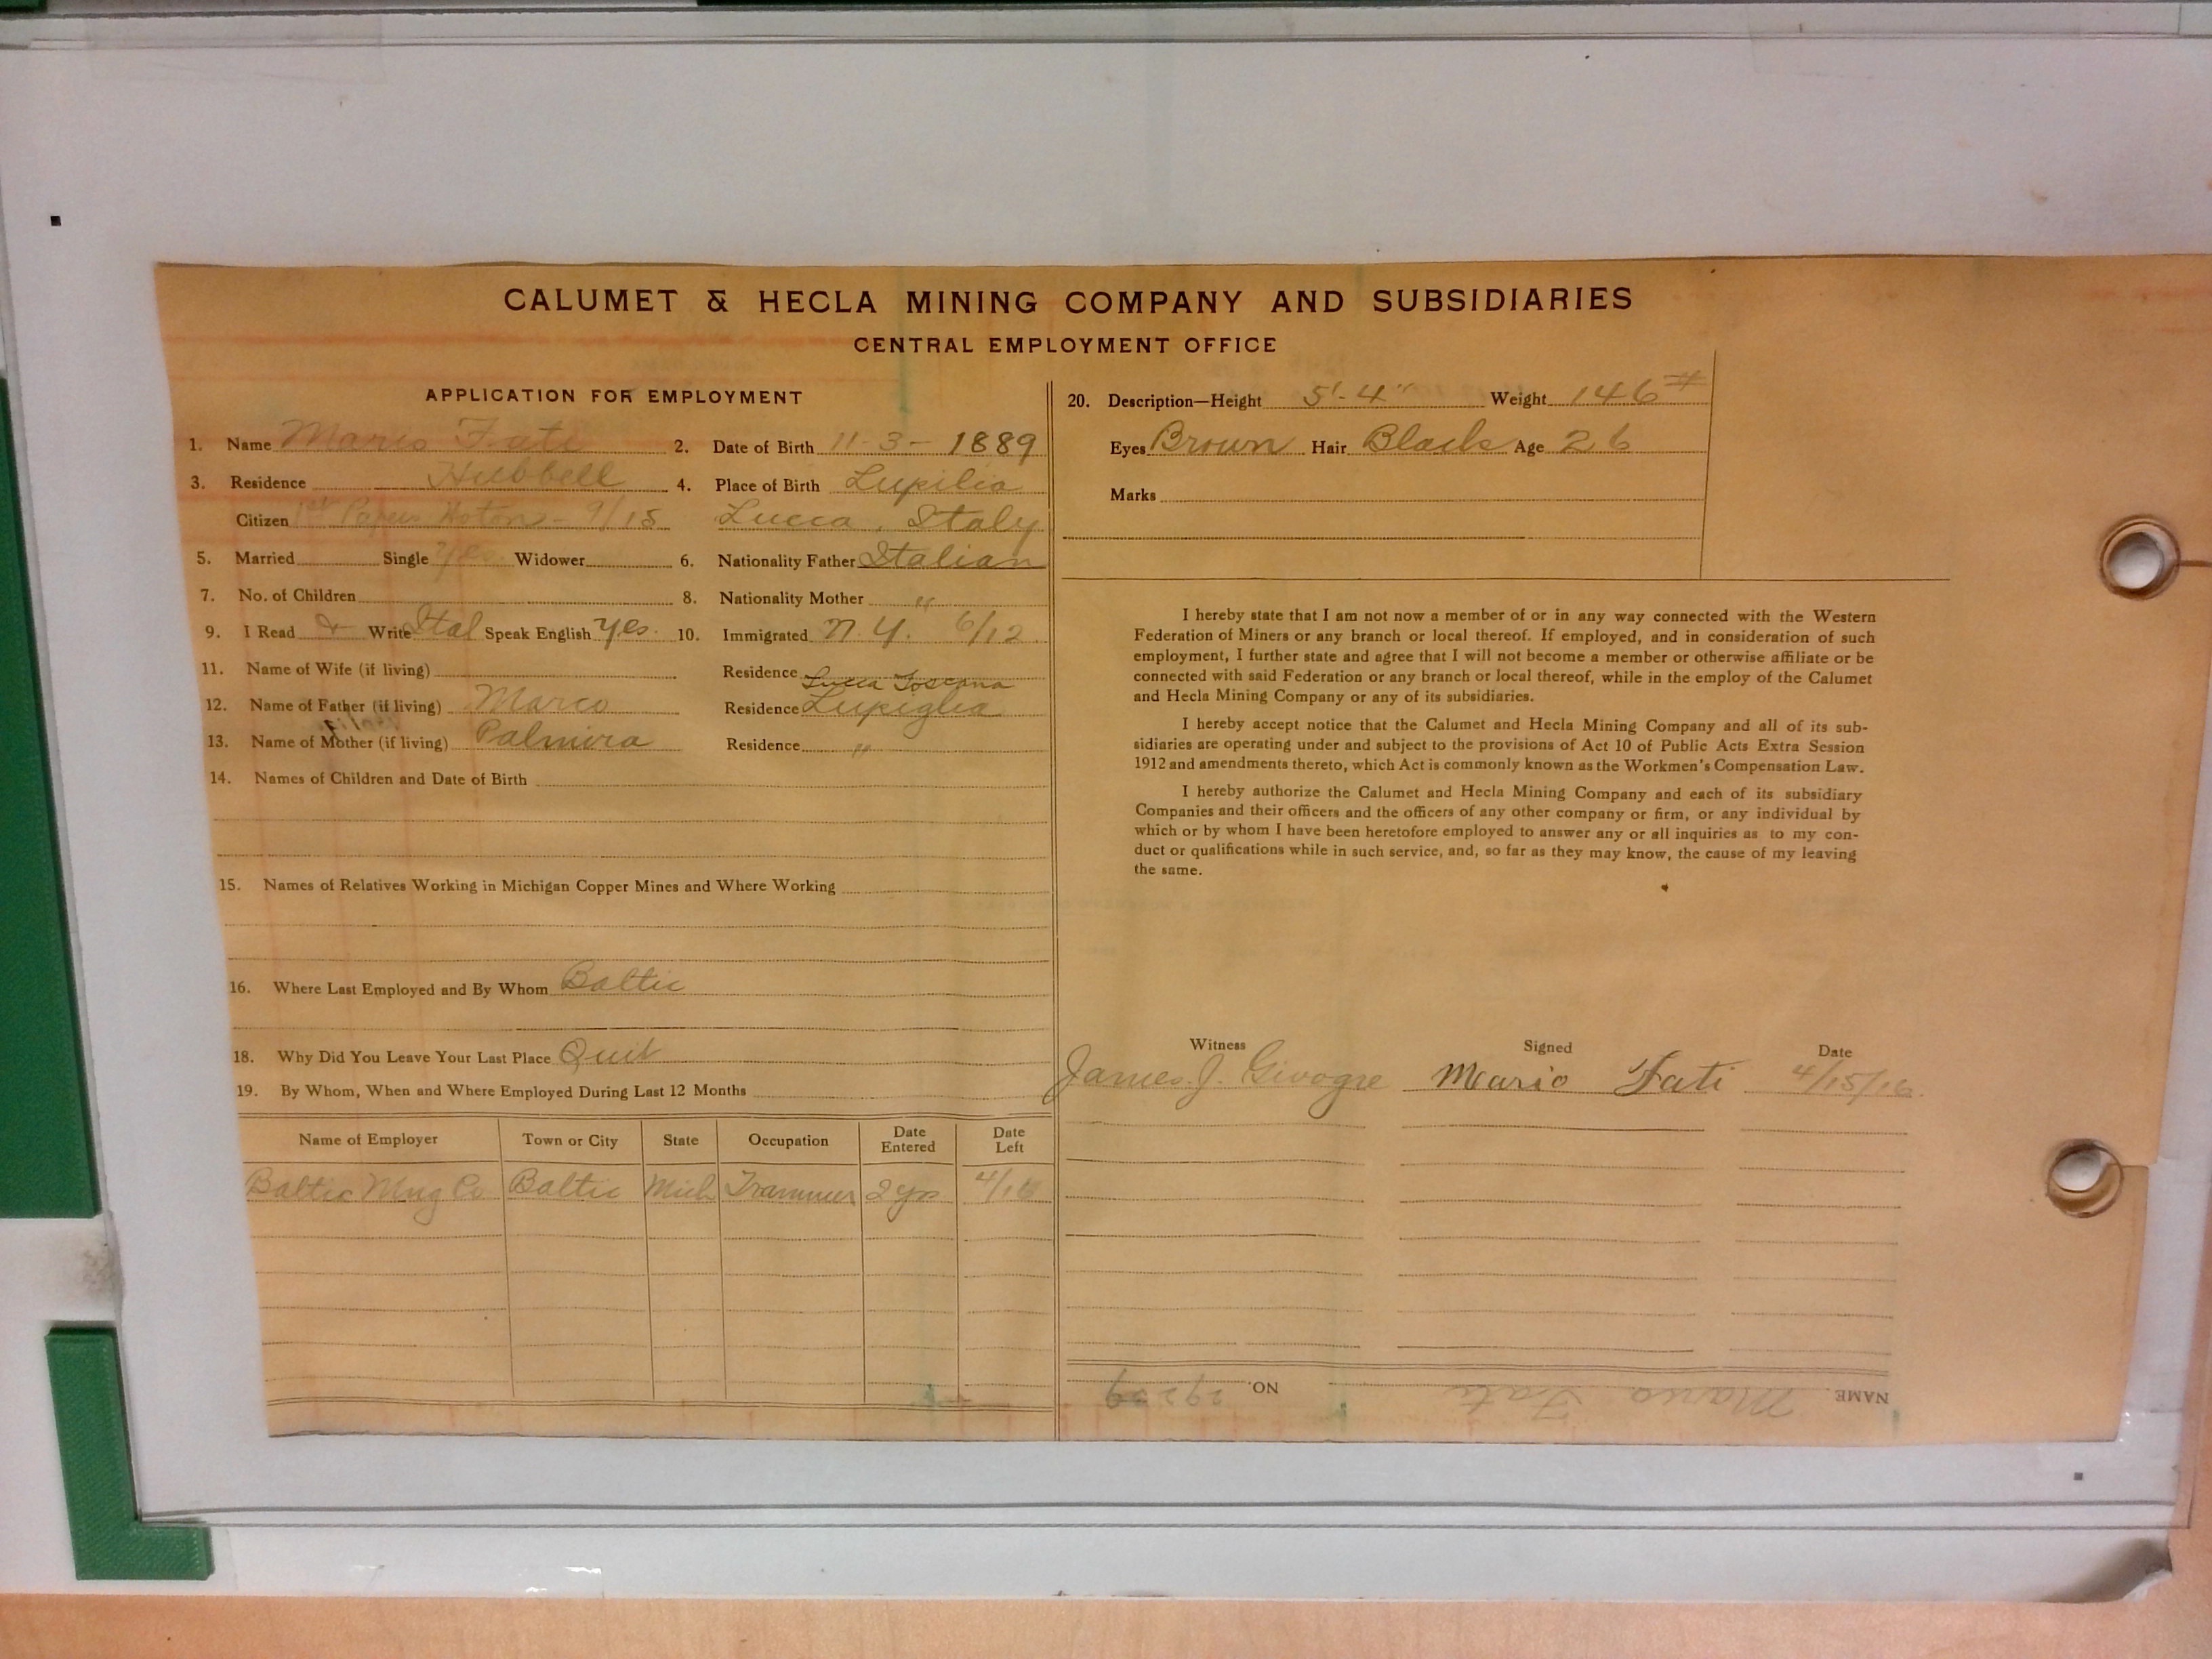 CALUMET & HECLA MINING COMPANY AND SUBSIDIARIES
CENTRAL EMPLOYMENT OFFICE
APPLICATION FOR EMPLOYMENT
1. Name Mario Fati 2. Date of Birth 11-3-1889
3. Residence Hubbell 4. Place of Birth Lupilia
Citizen 1st Papers Hoton - 9/15 Lucca, Italy
5. Married Single yes Widower 6. Nationality Father Italian
7. No. of Children 8. Nationality Mother "
9. I Read & Write Ital Speak English yes. 10. Immigrated N.Y. 6/12
11. Name of Wife (if living) Residence Lucca Toscana
12. Name of Father (if living) Marco Residence Lupiglia
13. Name of Mother (if living) Palmira Residence "
14. Names of Children and Date of Birth
15. Names of Relatives Working in Michigan Copper Mines and Where Working
16. Where Last Employed and By Whom Baltic
18. Why Did You Leave Your Last Place Quit
19. By Whom, When and Where Employed During Last 12 Months
Name of Employer Town or City State Occupation Date Entered Date Left
Baltic Mng Co Baltic Mich Trammer 2 yrs 4/16
20. Description—Height 5'-4" Weight 146#
Eyes Brown Hair Black Age 26
Marks
I hereby state that I am not now a member of or in any way connected with the Western
Federation of Miners or any branch or local thereof. If employed, and in consideration of such
employment, I further state and agree that I will not become a member or otherwise affiliate or be
connected with said Federation or any branch or local thereof, while in the employ of the Calumet
and Hecla Mining Company or any of its subsidiaries.
I hereby accept notice that the Calumet and Hecla Mining Company and all of its sub-
sidiaries are operating under and subject to the provisions of Act 10 of Public Acts Extra Session
1912 and amendments thereto, which Act is commonly known as the Workmen's Compensation Law.
I hereby authorize the Calumet and Hecla Mining Company and each of its subsidiary
Companies and their officers and the officers of any other company or firm, or any individual by
which or by whom I have been heretofore employed to answer any or all inquiries as to my con-
duct or qualifications while in such service, and, so far as they may know, the cause of my leaving
the same.
Witness Signed Date
James J. Givogre Mario Fati 4/15/16.
NAME. Mario Fati NO.